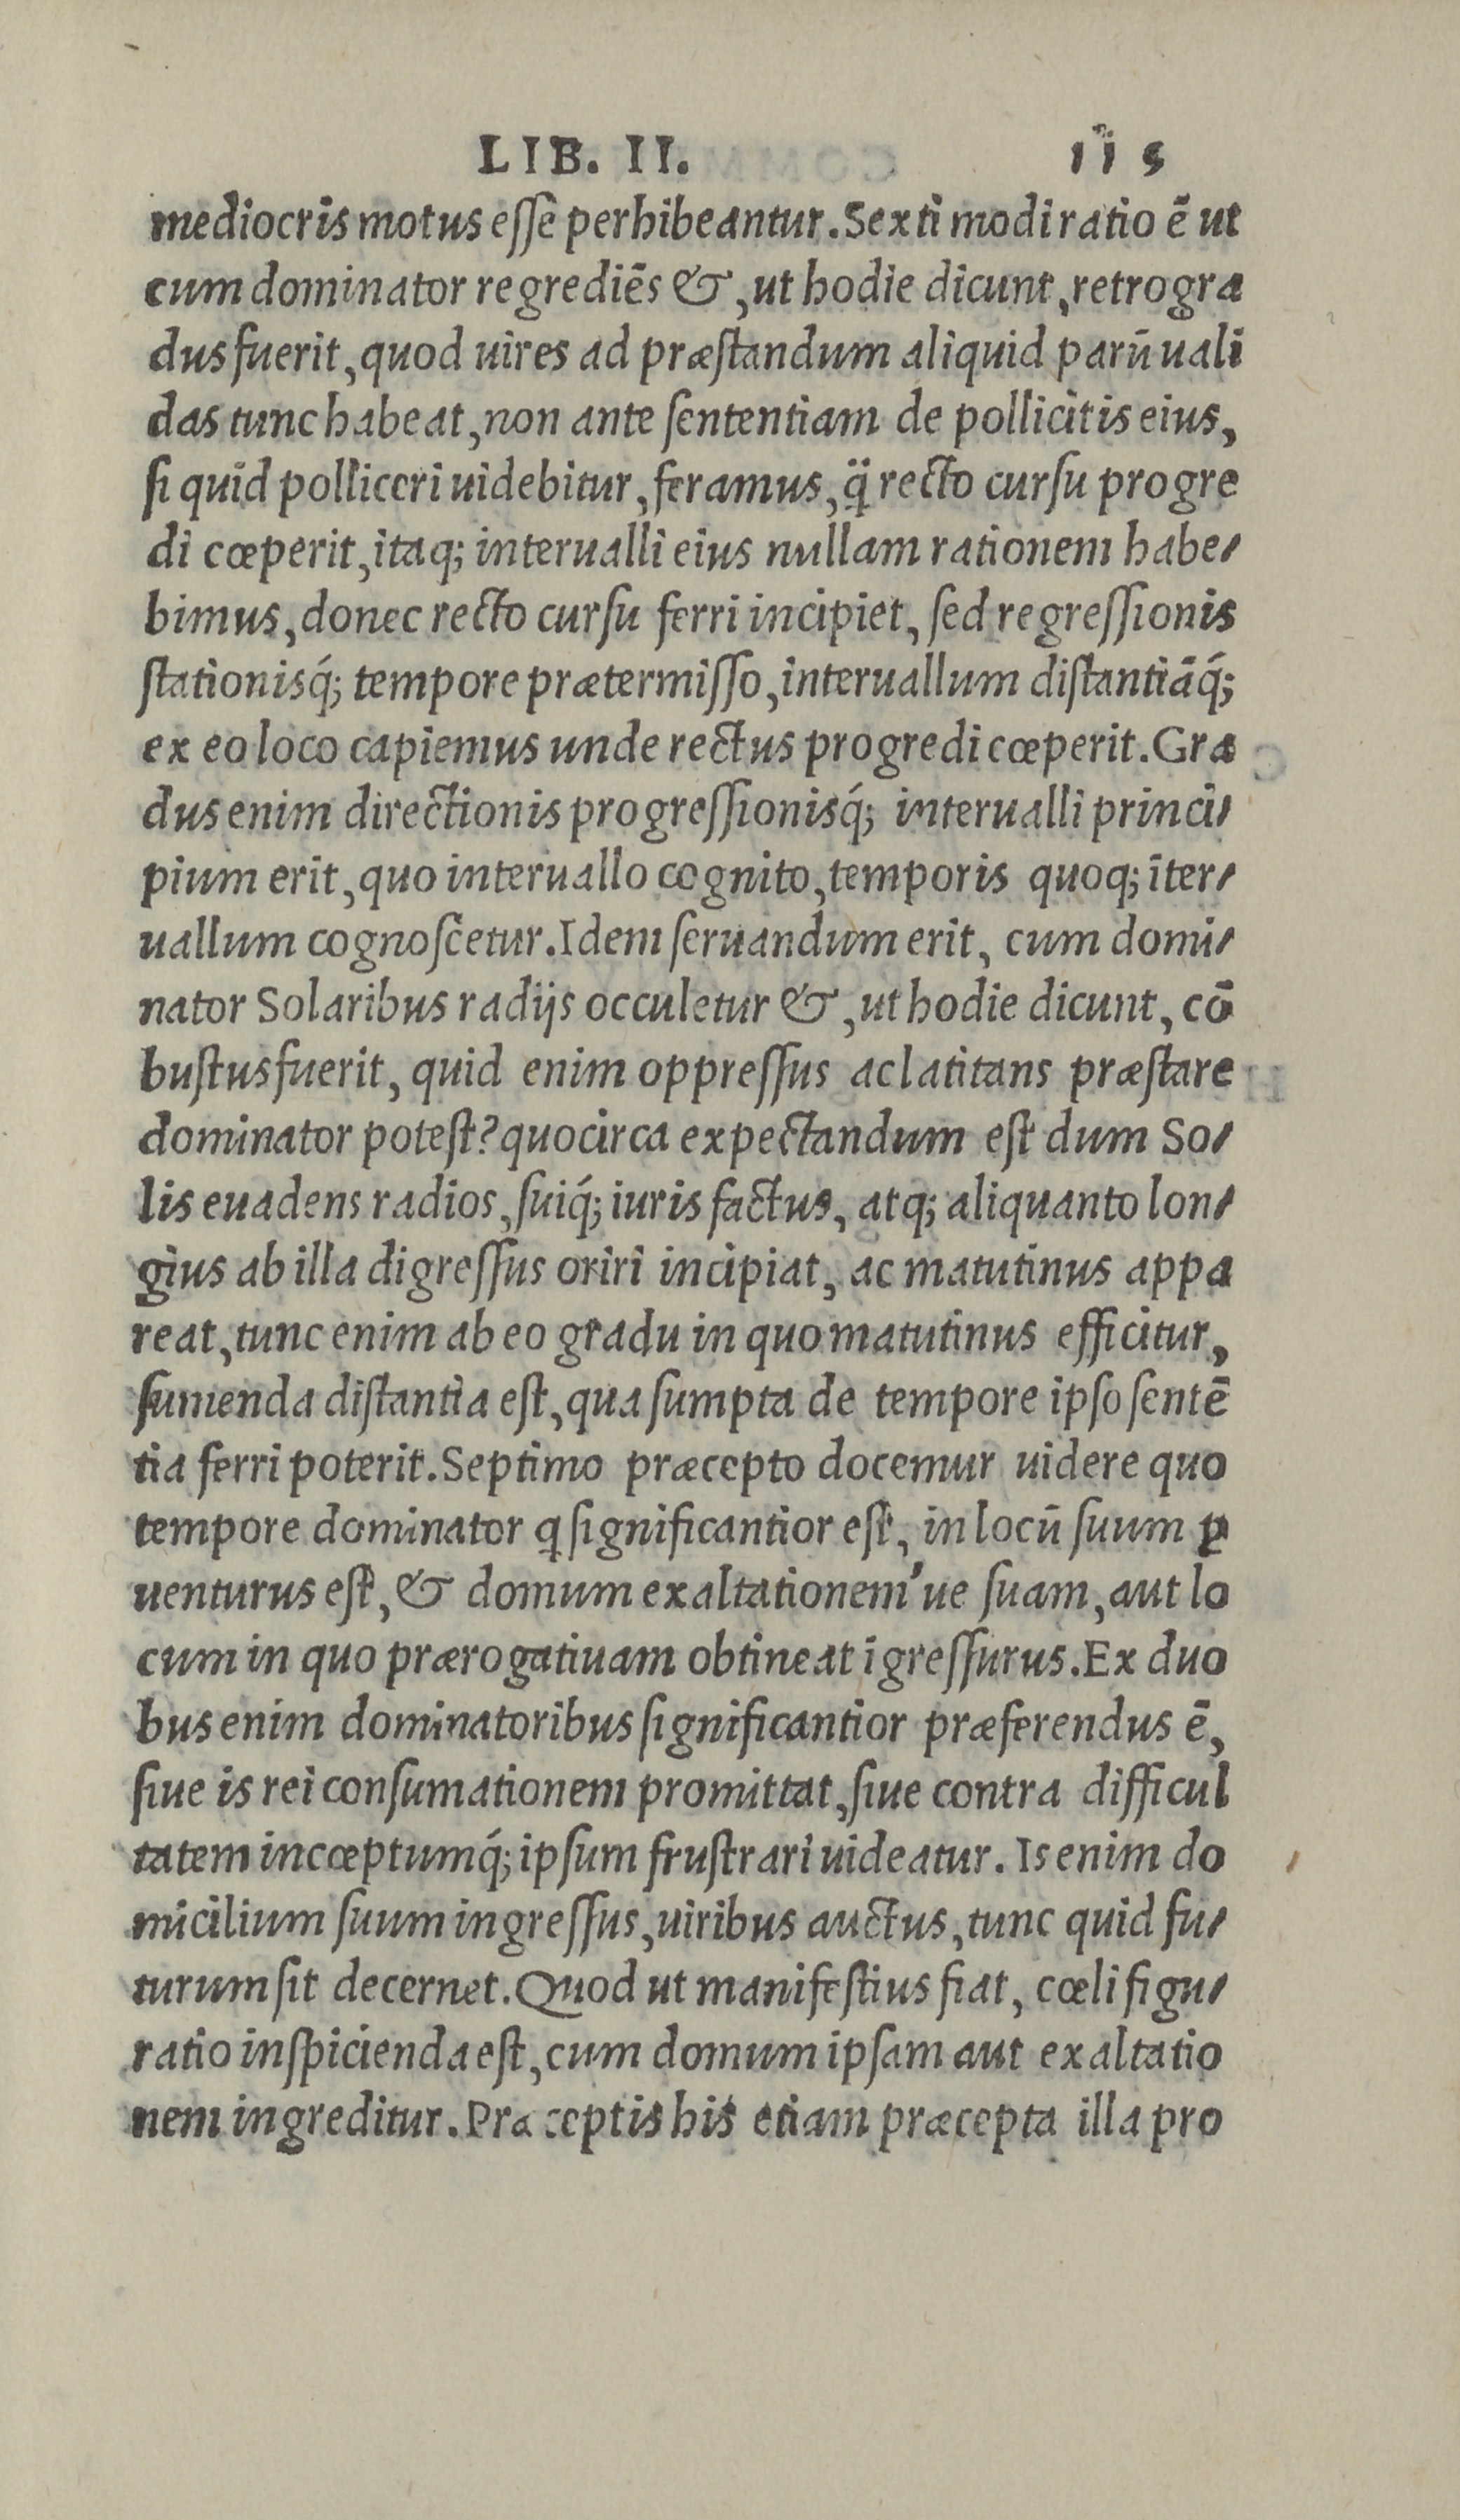 LIB. II. 115
mediocris motus esse perhibeantur. Sexti modi ratio ē ut
cum dominator regrediēs &, ut hodie dicunt, retrogra
dus fuerit, quod uires ad præstandum aliquid parū uali
das tunc habeat, non ante sententiam de pollicitis eius,
si quid polliceri uidebitur, feramus, q̈ recto cursu progre
di cœperit, itaq; interualli eius nullam rationem habe⸗
bimus, donec recto cursu ferri incipiet, sed regressionis
stationisq́; tempore prætermisso, interuallum distantiāq́;
ex eo loco capiemus unde rectus progredi cœperit. Gra
dus enim directionis progressionisq́; interualli princi⸗
pium erit, quo interuallo cognito, temporis quoq; īter⸗
uallum cognoscetur. Idem seruandum erit, cum domi⸗
nator Solaribus radijs occuletur &, ut hodie dicunt, cō
bustus fuerit, quid enim oppressus ac latitans præstare
dominator potest? quocirca expectandum est dum So⸗
lis euadens radios, suiq́; iuris factus, atq; aliquanto lon⸗
gius ab illa digressus oriri incipiat, ac matutinus appa
reat, tunc enim ab eo gradu in quo matutinus efficitur,
sumenda distantia est, qua sumpta de tempore ipso sentē
tia ferri poterit. Septimo præcepto docemur uidere quo
tempore dominator q significantior est, in locū suum ꝑ
uenturus est, & domum exaltationem'ue suam, aut lo
cum in quo prærogatiuam obtineat īgressurus. Ex duo
bus enim dominatoribus significantior præferendus ē,
siue is rei consumationem promittat, siue contra difficul
tatem incœptumq́; ipsum frustrari uideatur. Is enim do
micilium suum ingressus, uiribus auctus, tunc quid fu⸗
turum sit decernet. Quod ut manifestius fiat, cœli figu⸗
ratio inspicienda est, cum domum ipsam aut exaltatio
nem ingreditur. Præceptis his etiam præcepta illa pro